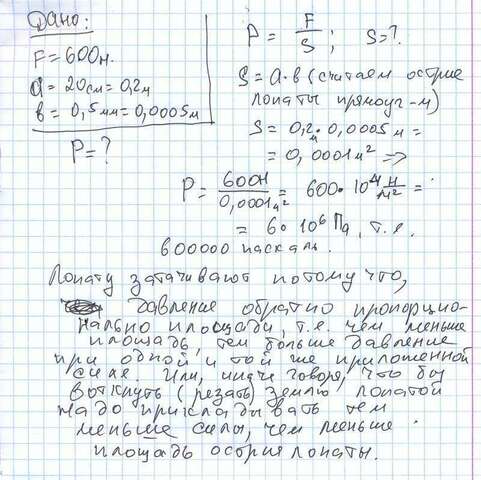 Дано:
F = 600н.
a = 20см = 0,2м
в = 0,5мм = 0,0005м
P = ?
P = F/S; S = ?.
S = a·в (считаем острие
лопаты прямоуг-м)
S = 0,2м · 0,0005м =
= 0,0001м² =>
P = 600Н/0,0001м² = 600·10⁴ Н/м² =
= 6·10⁶ Па, т.е.
600000 паскаль.
Лопату затачивают потому что,
давление обратно пропорцио-
нально площади, т.е. чем меньше
площадь, тем больше давление
при одной и той же приложенной
силе. Или, иначе говоря, что бы
воткнуть (резать) землю лопатой
надо прикладывать тем
меньше силы, чем меньше
площадь острия лопаты.